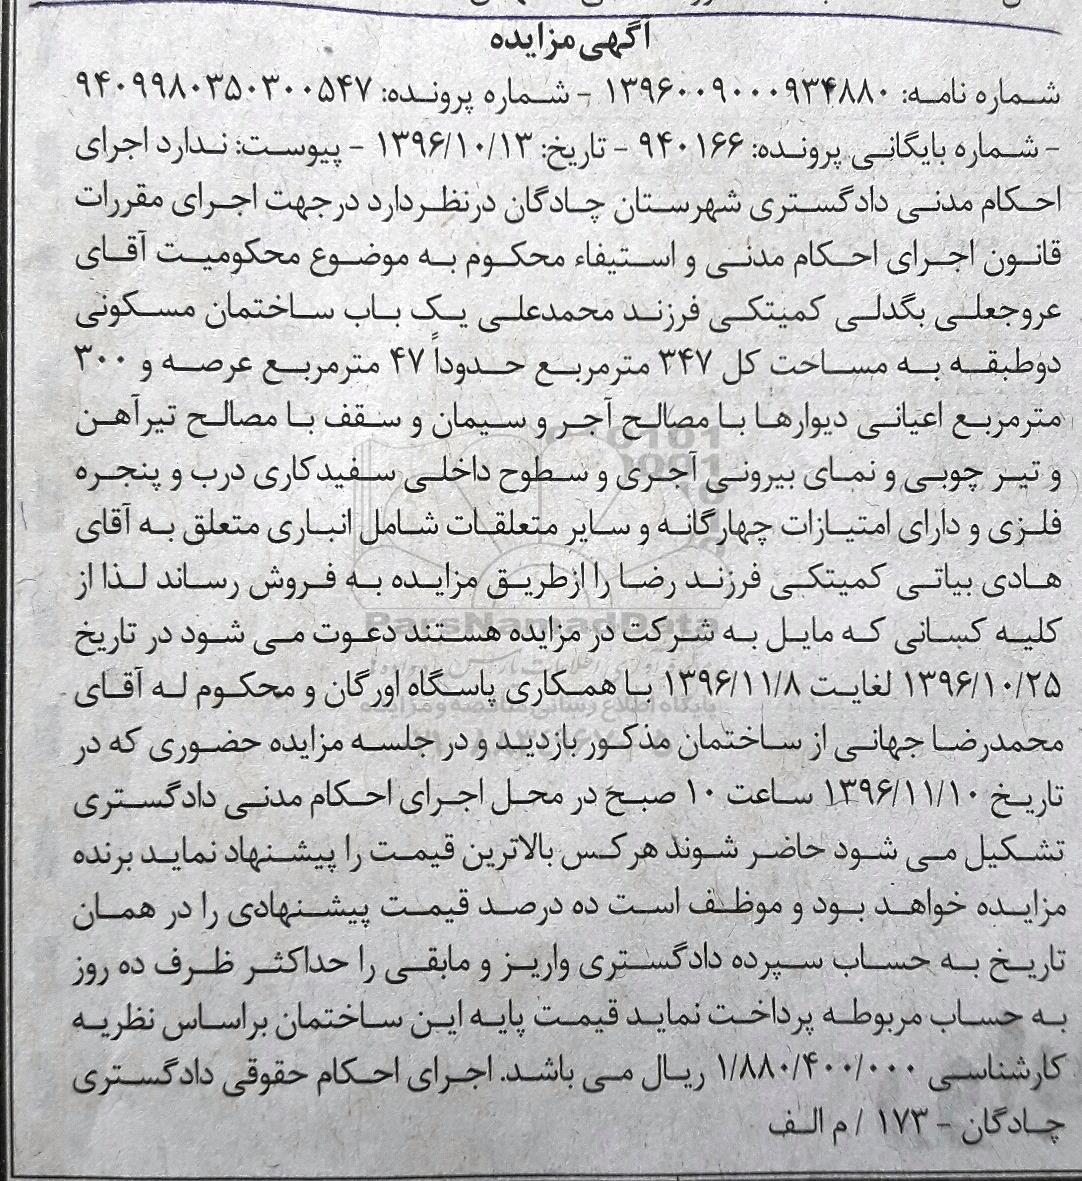 آگهی مزایده
شماره نامه: ۱۳۹۶۰۰۹۰۰۰۹۳۴۸۸۰ - شماره پرونده: ۹۴۰۹۹۸۰۳۵۰۳۰۰۵۴۷
- شماره بایگانی پرونده: ۹۴۰۱۶۶ - تاریخ: ۱۳۹۶/۱۰/۱۳ - پیوست: ندارد اجرای
احکام مدنی دادگستری شهرستان چادگان درنظردارد درجهت اجرای مقررات
قانون اجرای احکام مدنی و استیفاء محکوم به موضوع محکومیت آقای
عروجعلی بگدلی کمیتکی فرزند محمدعلی یک باب ساختمان مسکونی
دوطبقه به مساحت کل ۳۴۷ مترمربع حدوداً ۴۷ مترمربع عرصه و ۳۰۰
مترمربع اعیانی دیوارها با مصالح آجر و سیمان و سقف با مصالح تیرآهن
و تیر چوبی و نمای بیرونی آجری و سطوح داخلی سفیدکاری درب و پنجره
فلزی و دارای امتیازات چهارگانه و سایر متعلقات شامل انباری متعلق به آقای
هادی بیاتی کمیتکی فرزند رضا را ازطریق مزایده به فروش رساند لذا از
کلیه کسانی که مایل به شرکت در مزایده هستند دعوت می شود در تاریخ
۱۳۹۶/۱۰/۲۵ لغایت ۱۳۹۶/۱۱/۸ با همکاری پاسگاه اورگان و محکوم له آقای
محمدرضا جهانی از ساختمان مذکور بازدید و در جلسه مزایده حضوری که در
تاریخ ۱۳۹۶/۱۱/۱۰ ساعت ۱۰ صبح در محل اجرای احکام مدنی دادگستری
تشکیل می شود حاضر شوند هرکس بالاترین قیمت را پیشنهاد نماید برنده
مزایده خواهد بود و موظف است ده درصد قیمت پیشنهادی را در همان
تاریخ به حساب سپرده دادگستری واریز و مابقی را حداکثر ظرف ده روز
به حساب مربوطه پرداخت نماید قیمت پایه این ساختمان براساس نظریه
کارشناسی ۱/۸۸۰/۴۰۰/۰۰۰ ریال می باشد. اجرای احکام حقوقی دادگستری
چادگان - ۱۷۳ / م الف
ParsNamadData
پایگاه اطلاع رسانی مناقصه و مزایده